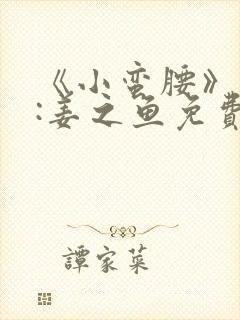 《小蛮腰》
:姜之鱼免費
譚家菜